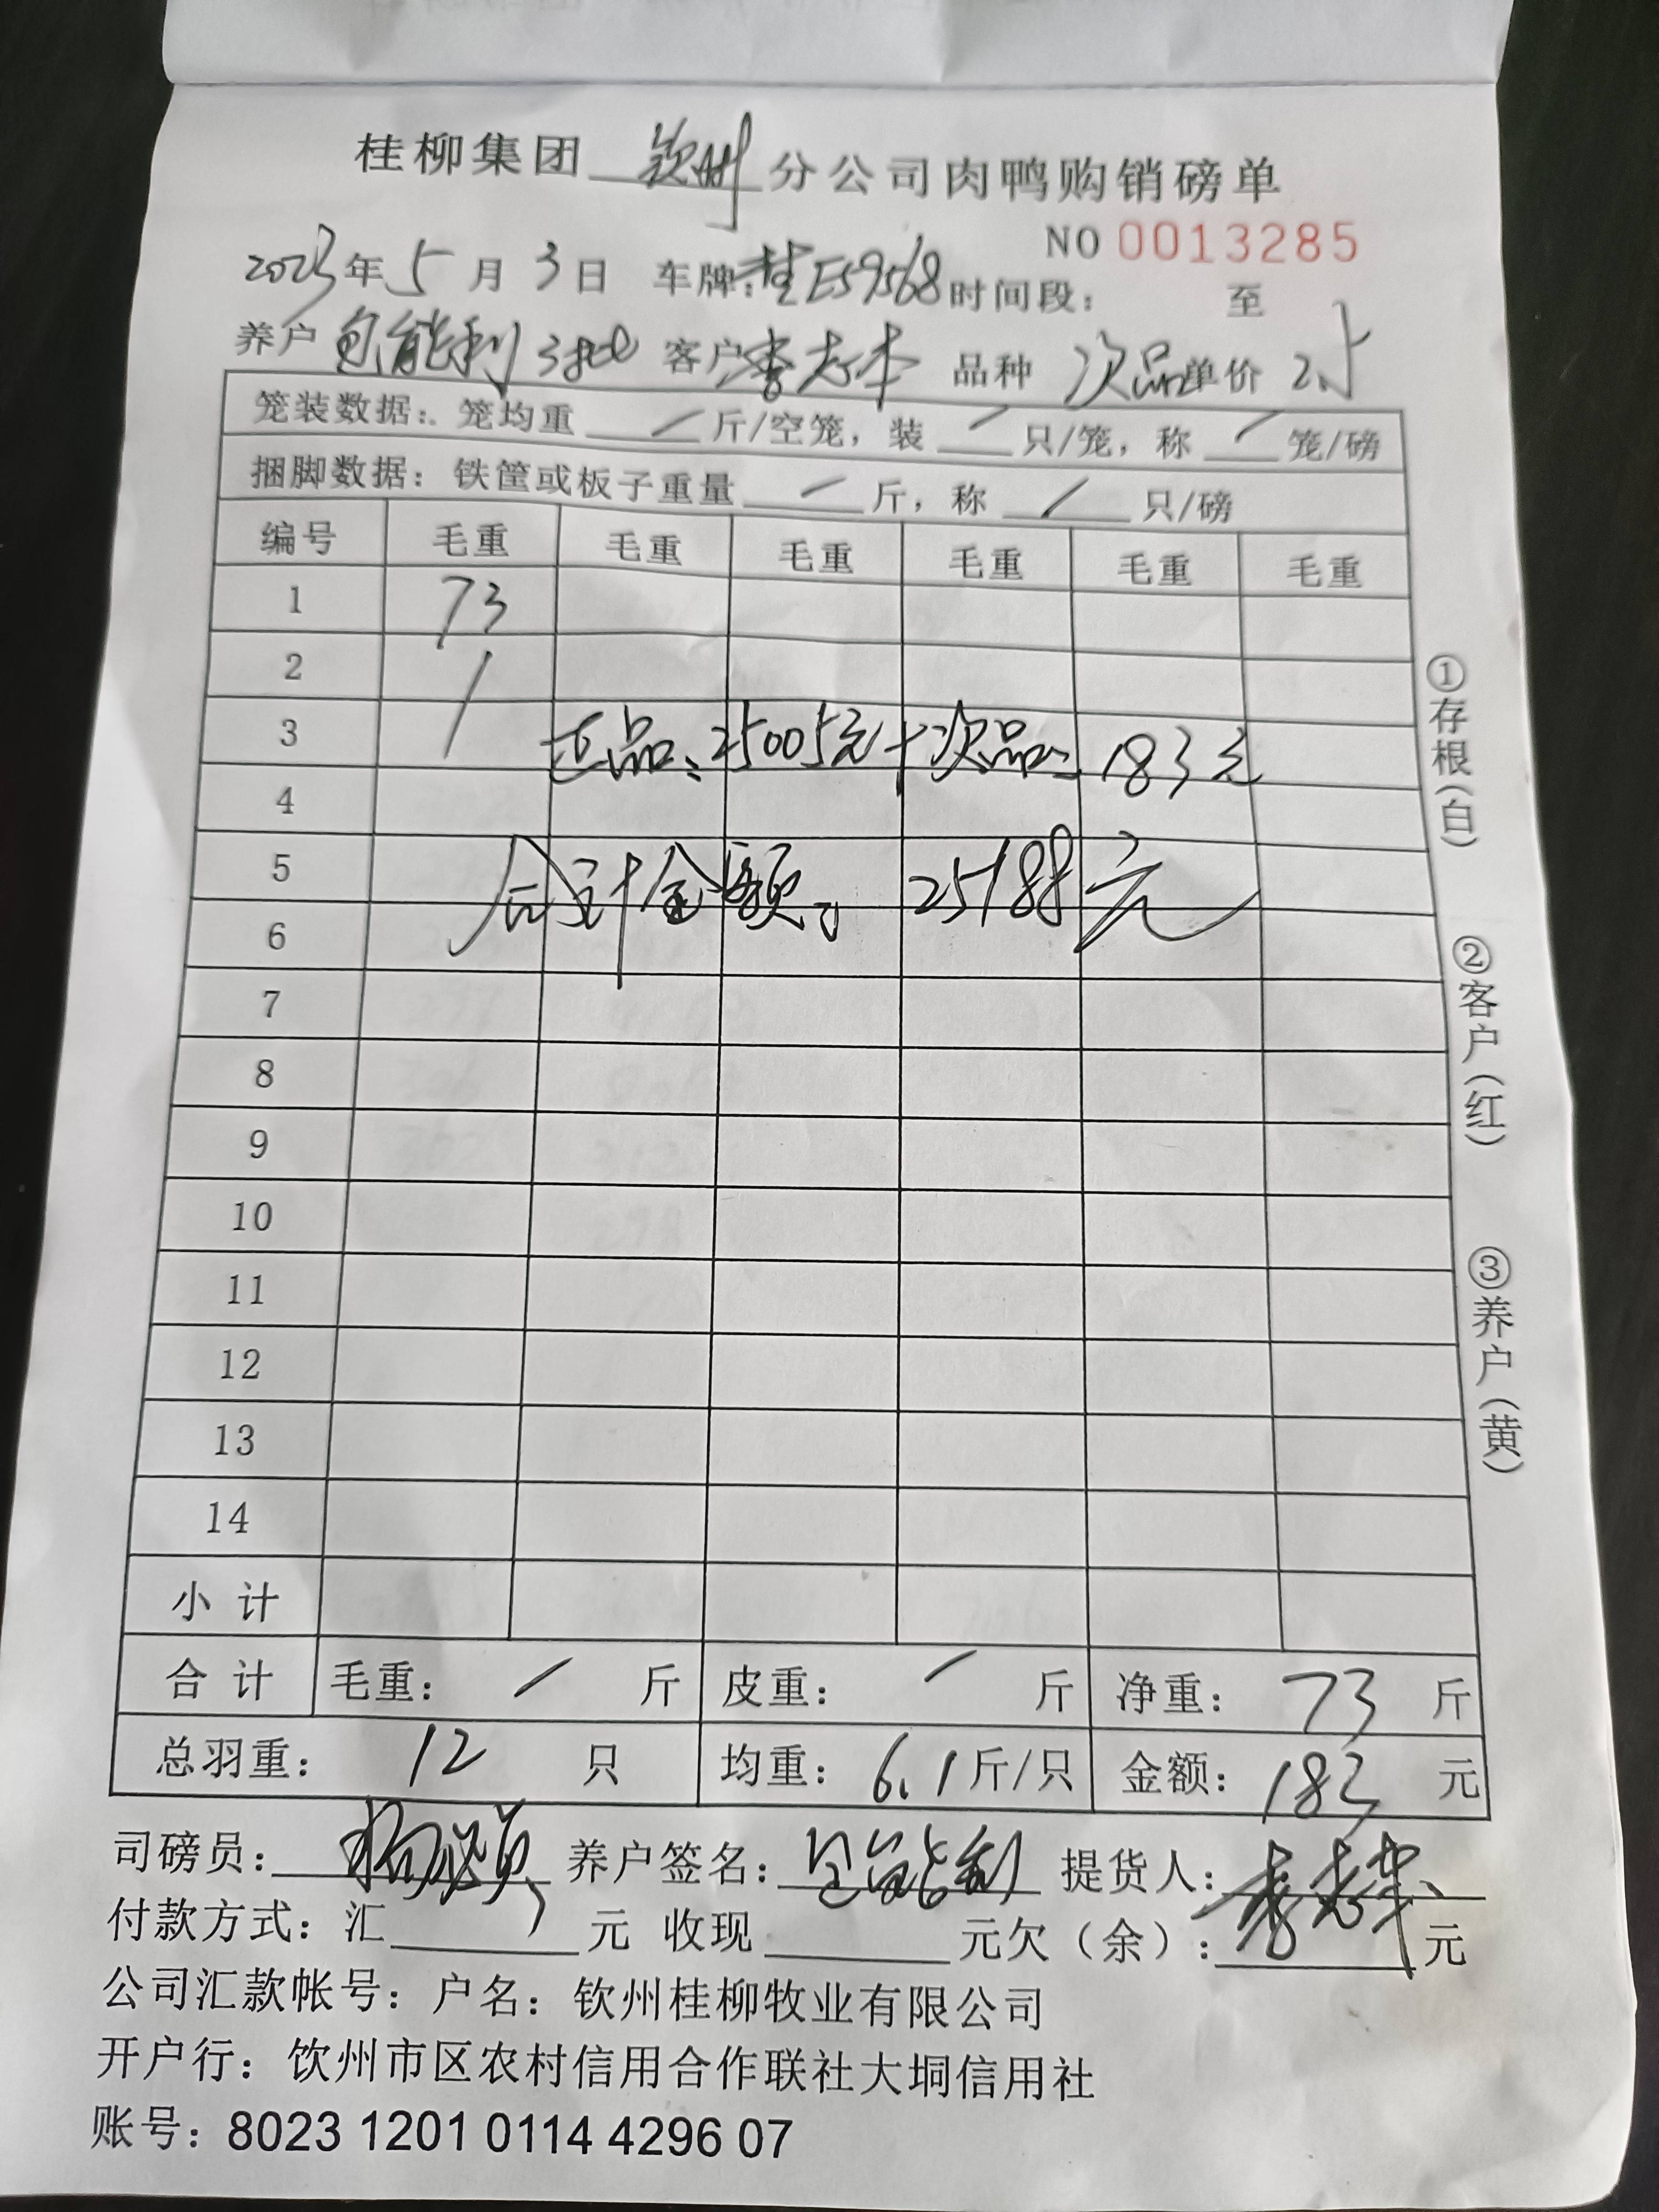 桂柳集团 钦州 分公司肉鸭购销磅单
NO 0013285
2023年 5 月 3 日 车牌:桂E59568 时间段: 至
养户 包能利 3批 客户 李志本 品种 次品 单价 2.5
笼装数据: 笼均重 / 斤/空笼, 装 / 只/笼, 称 / 笼/磅
捆脚数据: 铁筐或板子重量 / 斤, 称 / 只/磅
编号 毛重 毛重 毛重 毛重 毛重 毛重
1 73
2 /
3 正品: 25005元+次品: 183元
4
5 合计金额: 25188元
6
7
8
9
10
11
12
13
14
小 计
合 计 毛重: / 斤 皮重: / 斤 净重: 73 斤
总羽重: 12 只 均重: 6.1 斤/只 金额: 183 元
司磅员: 养户签名: 包能利 提货人:
付款方式: 汇 元 收现 元欠(余): 元
公司汇款帐号: 户名: 钦州桂柳牧业有限公司
开户行: 钦州市区农村信用合作联社大垌信用社
账号: 8023 1201 0114 4296 07
①存根(白)
②客户(红)
③养户(黄)